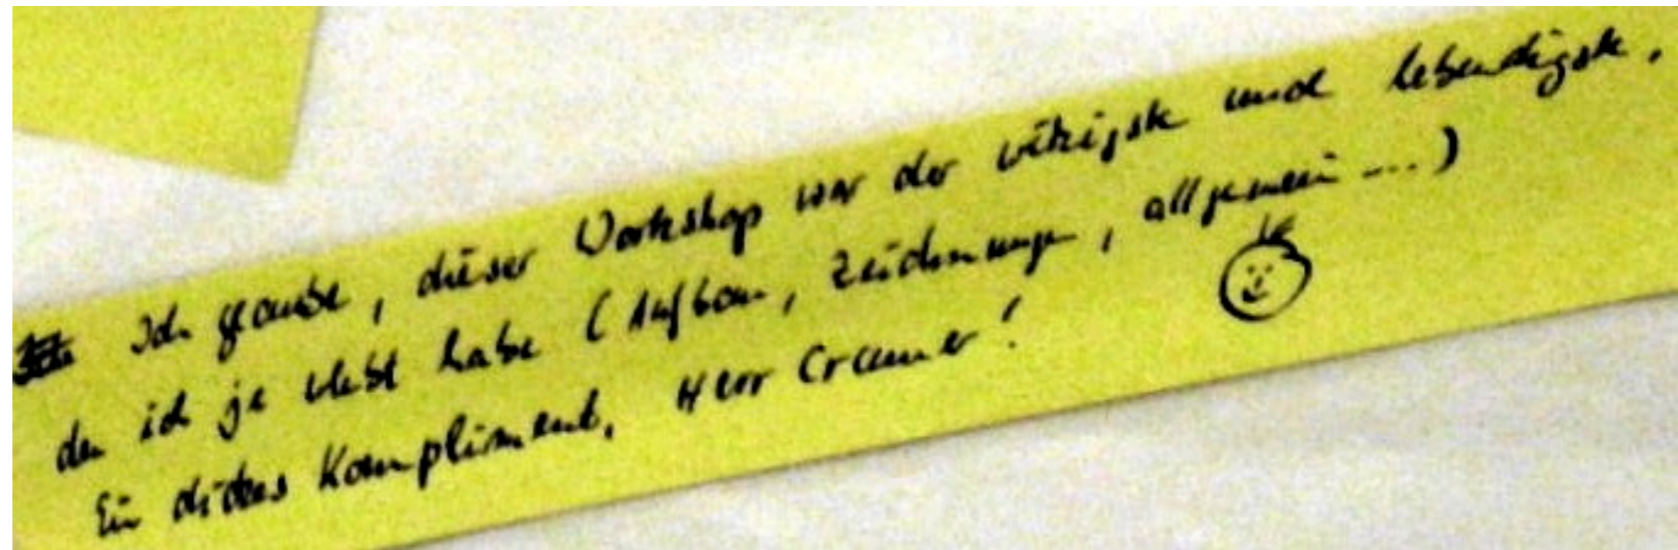 Ich glaube, dieser Workshop war der witzigste und lebendigste,
den ich je erlebt habe (Aufbau, Zeichnungen, allgemein ...)
Ein dickes Kompliment, Herr Cramer!